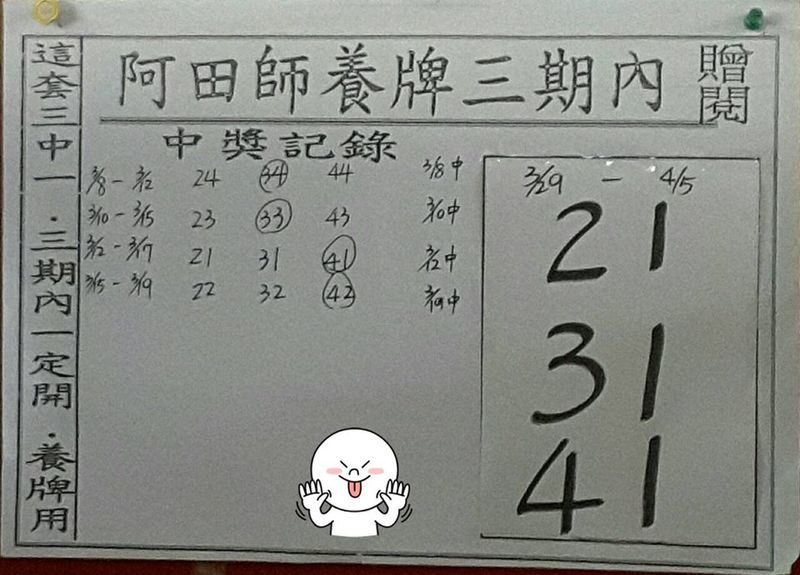 阿田師養牌三期內
贈閱
這套三中一．三期內一定開．養牌用
中獎記錄
3/8 - 3/12 24 34 44 3/8中
3/10 - 3/15 23 33 43 3/10中
3/12 - 3/17 21 31 41 3/12中
3/15 - 3/19 22 32 42 3/19中
3/29 - 4/5
21
31
41